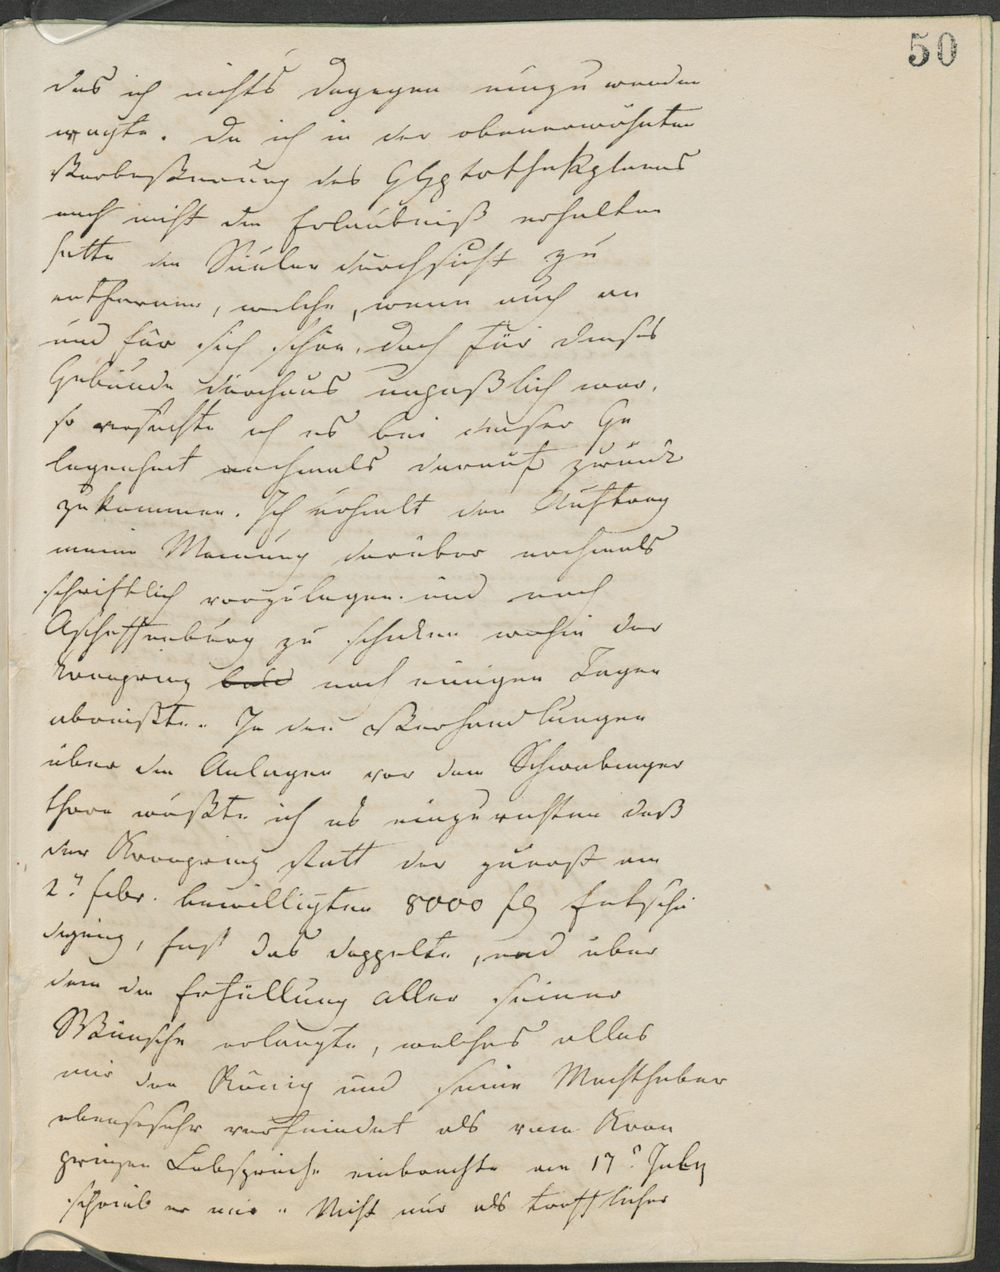 50
das ich nichts dagegen einzuwenden
wagte. Da ich in der obenerwähnten
Verbeßerung des Glyptothekplanes
noch nicht die Erlaubniß erhalten
hatte die Säulen durchsicht zu
entfernen, welche, wenn auch an
und für sich schön, doch für dieses
Gebäude durchaus unpaßlich war,
so versuchte ich es bei dieser Ge
legenheit nochmals darauf zurück
zukommen. Ich erhielt den Auftrag
meine Meinung darüber nochmals
schriftlich vorzulegen und nach
Aschaffenburg zu schicken wohin der
Kronprinz bald nach einigen Tagen
abreißte. In den Verhandlungen
über die Anlagen vor dem Schwabinger
thore wußte ich es einzurichten daß
der Kronprinz statt der zuerst am
2n Febr. bewilligten 8000 fl Entschä
digung, fast das doppelte, und über
dem die Erfüllung aller seiner
Wünsche erlangte, welches alles
mir den König und seine Machthaber
ebensosehr verfeindet als vom Kron
prinzen Lobsprüche einbrachte am 17n July
schrieb er mir „ Nicht nur als trefflicher